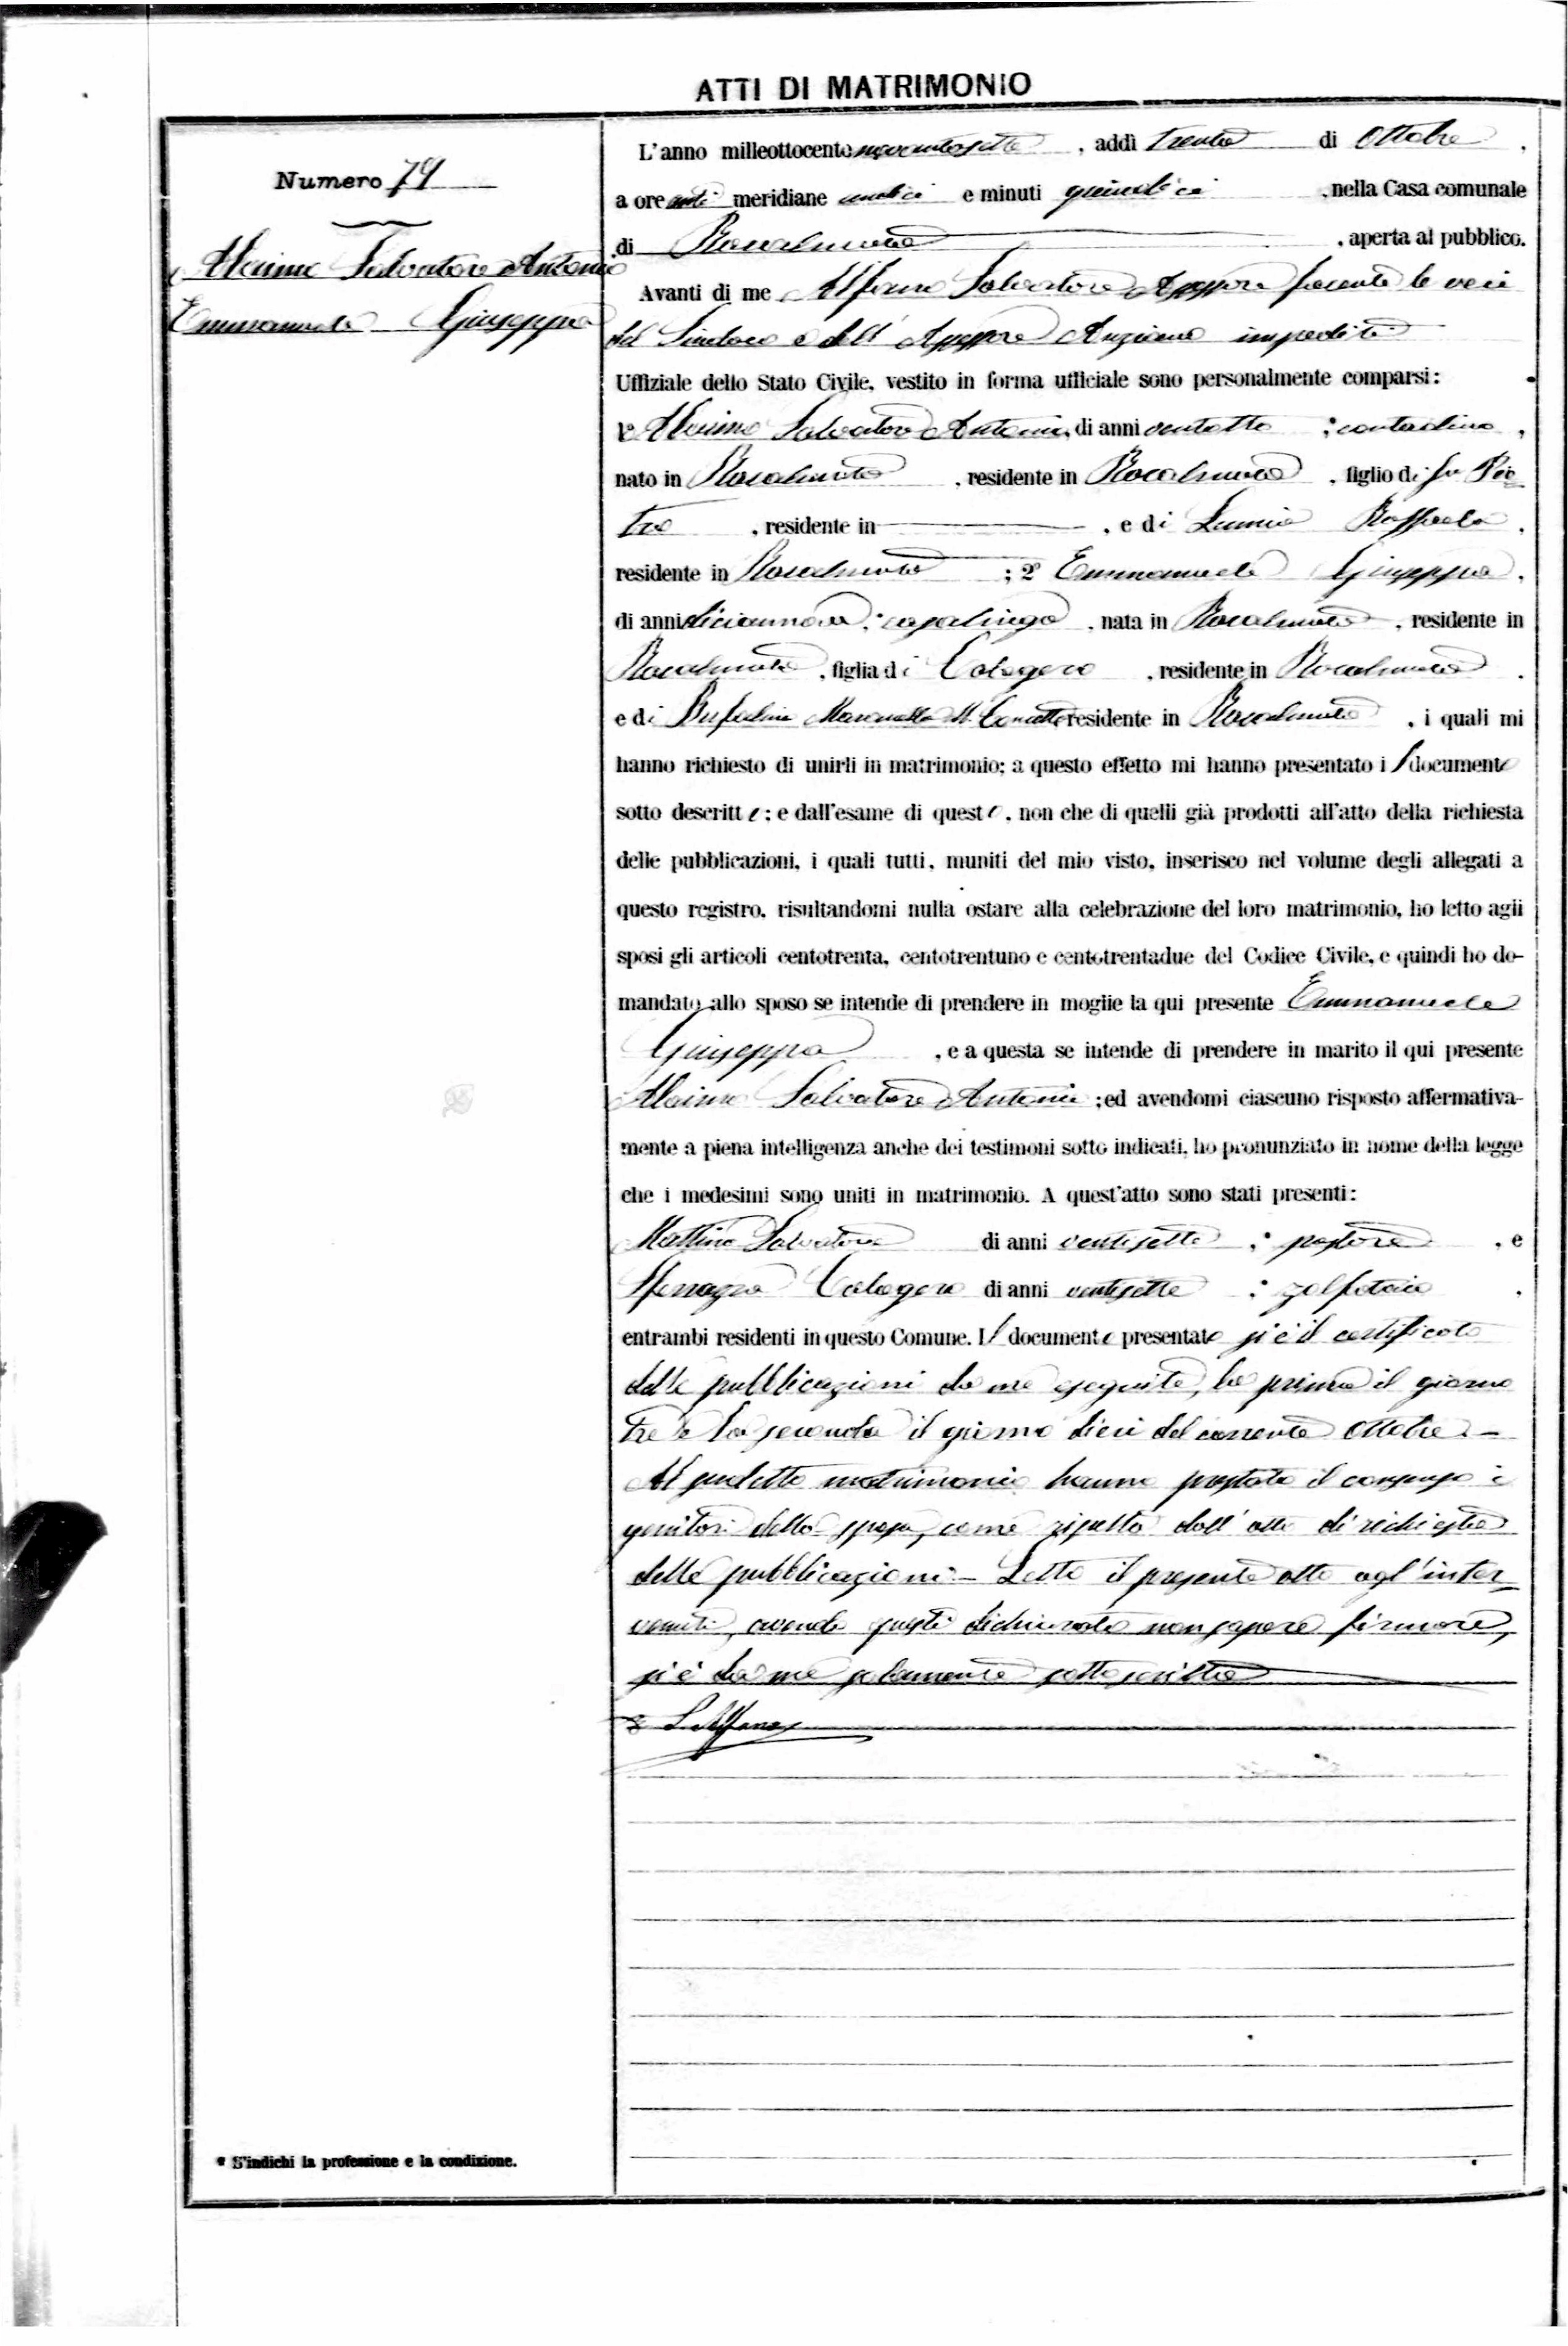 ATTI DI MATRIMONIO
Numero 79
Alaimo Salvatore Antonio
Emmanuele Giuseppa
L'anno milleottocento novantasette, addì trenta di Ottobre,
a ore anti meridiane undici e minuti quindici, nella Casa comunale
di Racalmuto, aperta al pubblico.
Avanti di me Alfano Salvatore Assessore facente le veci
del Sindaco e dell'Assessore Anziano impediti
Uffiziale dello Stato Civile, vestito in forma ufficiale sono personalmente comparsi:
1º Alaimo Salvatore Antonio, di anni ventotto; contadino,
nato in Racalmuto, residente in Racalmuto, figlio di fu Pie
tro, residente in, e di Lumia Raffaela,
residente in Racalmuto; 2º Emmanuele Giuseppa,
di anni diciannove; casalinga, nata in Racalmuto, residente in
Racalmuto, figlia di Calogero, residente in Racalmuto,
e di Bufalino residente in Racalmuto, i quali mi
hanno richiesto di unirli in matrimonio; a questo effetto mi hanno presentato il documento
sotto descritto; e dall'esame di questo, non che di quelli già prodotti all'atto della richiesta
delle pubblicazioni, i quali tutti, muniti del mio visto, inserisco nel volume degli allegati a
questo registro, risultandomi nulla ostare alla celebrazione del loro matrimonio, ho letto agli
sposi gli articoli centotrenta, centotrentuno e centotrentadue del Codice Civile, e quindi ho do-
mandato allo sposo se intende di prendere in moglie la qui presente Emmanuele
Giuseppa, e a questa se intende di prendere in marito il qui presente
Alaimo Salvatore Antonio; ed avendomi ciascuno risposto affermativa-
mente a piena intelligenza anche dei testimoni sotto indicati, ho pronunziato in nome della legge
che i medesimi sono uniti in matrimonio. A quest'atto sono stati presenti:
Mattina Salvatore di anni ventisette; pastore, e
Sferrazza Calogero di anni ventisette; zolfataio,
entrambi residenti in questo Comune. Il documento presentato si è il certificato
delle pubblicazioni da me eseguite, la prima il giorno
tre e la seconda il giorno dieci del corrente Ottobre. —
Al predetto matrimonio hanno prestato il consenso i
genitori della sposa, come risulta dall'atto di richiesta
delle pubblicazioni. — Letto il presente atto agl'inter
venuti, avendo questi dichiarato non sapere firmare,
si è da me solamente sottoscritto
S. Alfano
* S'indichi la professione e la condizione.